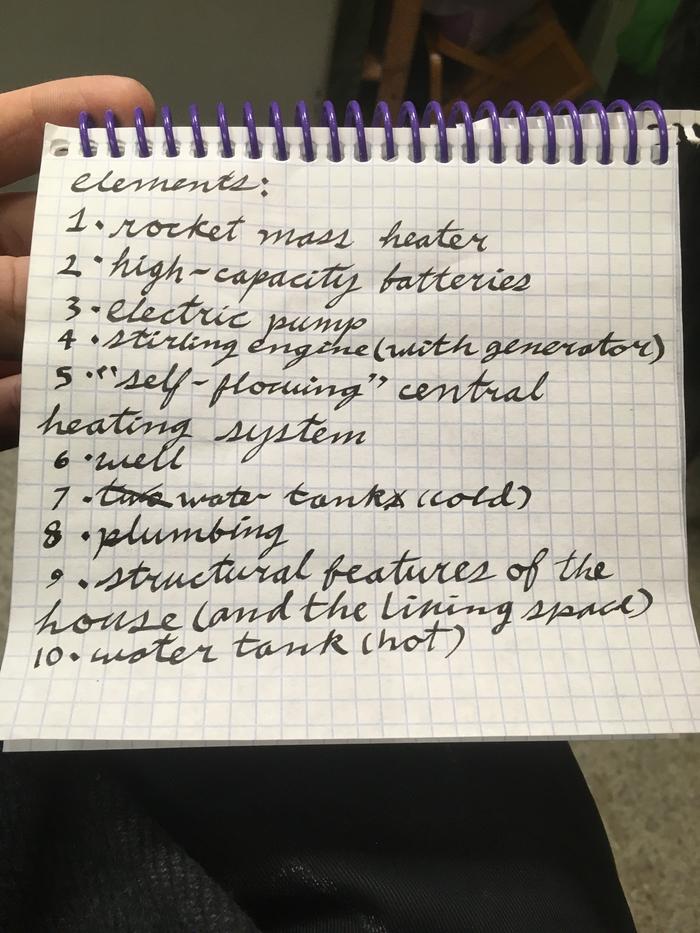 elements:
1. rocket mass heater
2. high-capacity batteries
3. electric pump
4. stirling engine (with generator)
5. "self-flowing" central
heating system
6. well
7. two water tanks (cold)
8. plumbing
9. structural features of the
house (and the lining space)
10. water tank (hot)